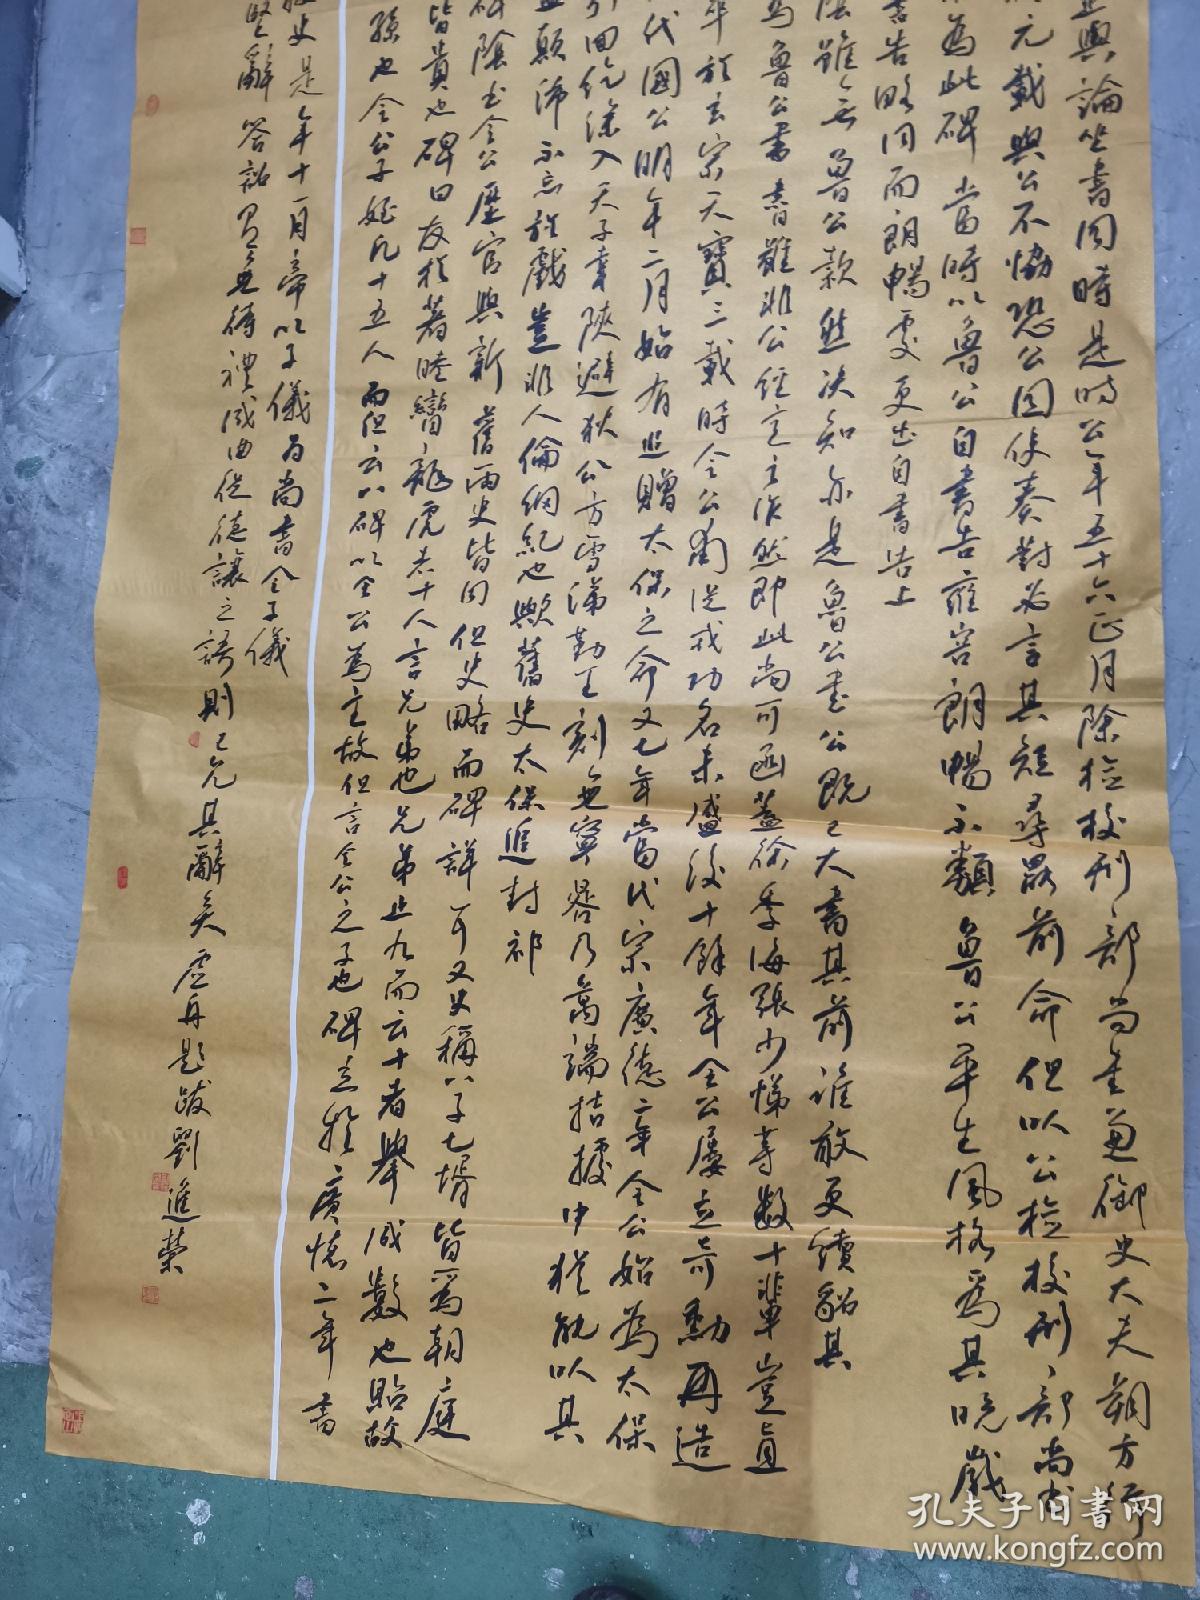 與論坐書同時是時公年五十六正月除檢校刑部尚書兼御史大夫朔方行
元載與公不協恐公因使奏對必言其短尋罷前命但以公檢校刑部尚書
為此碑當時以魯公自書告雍容朗暢不類魯公平生風格為其晚歲
書告略同而朗暢處更出自書告上
陰雖無魯公款然決知亦是魯公書公既已大書其前誰敢更續貂其
為魯公書書雖非公經意之作然即此尚可函蓋徐季海張少悌等數十輩豈直
年於玄宗天寶三載時令公閥從戎功名未盛後十餘年令公屢立奇勳再造
代國公明年二月始有追贈太保之命又七年當代宗廣德二年令公始為太保
引回紇深入天子幸陝避狄公方雪涕勤王刻無寧晷乃萬端拮據中猶能以其
顛沛不忘於戲豈非人倫綱紀也歟舊史太保追封祁
碑陰書令公歷官與新舊兩史皆同但史略而碑詳耳又史稱八子七壻皆為朝庭
皆貴也碑曰友于著睦鸞龍虎者十人言兄弟也兄弟止九而云十者舉成數也貽故
孫也令公子姪凡十五人而但云八碑以令公為主故但言令公之子也碑立於廣德二年書
史是年十一月帝以子儀為尚書令子儀
堅辭答詔
無待禮成曲從德讓之語則已允其辭矣虛舟題跋劉進榮
孔夫子旧书网
www.kongfz.com